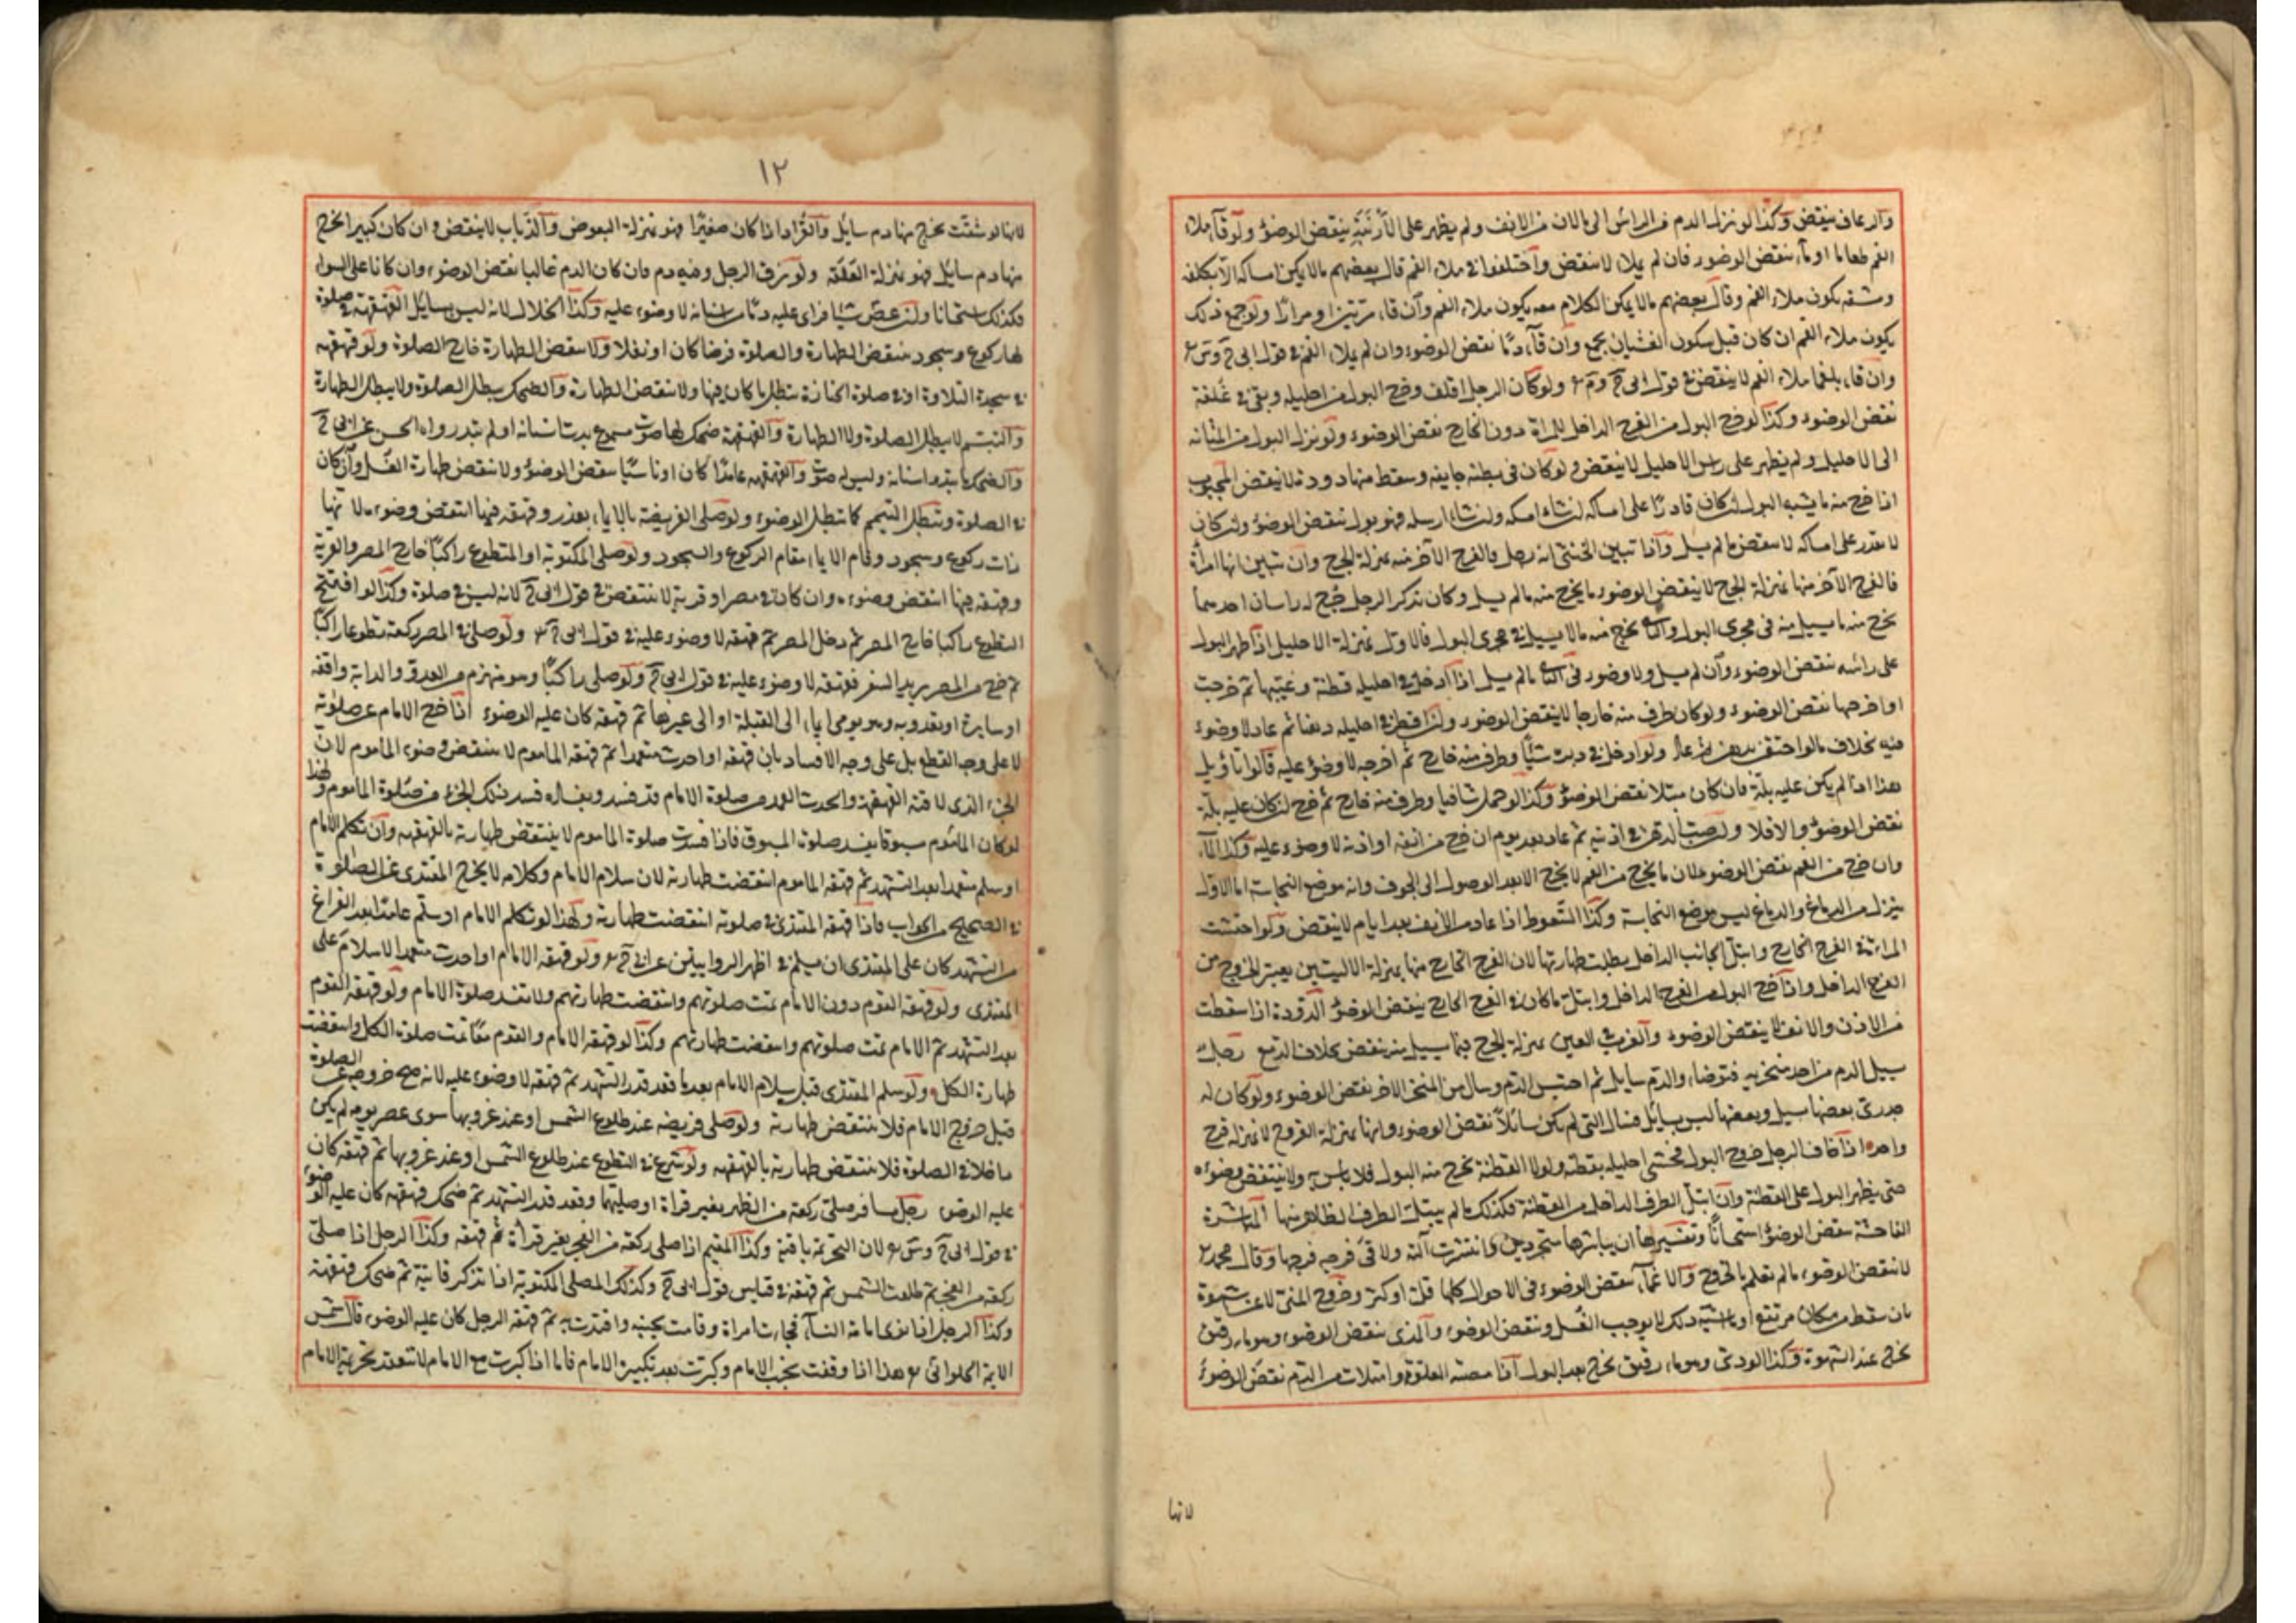 والرعاف ينقض وكذا لو نزل الدم من الرأس الى مالان من الانف ولم يظهر على الأرنبة ينقض الوضوء ولو قاء ملاء
الفم طعاما او ماء ينقض الوضوء فان لم يملاء لا ينقض واختلفوا في ملاء الفم قال بعضهم مالا يمكن امساكه الا بكلفة
ومشقة يكون ملاء الفم وقال بعضهم مالا يمكن الكلام معه يكون ملاء الفم وان قاء مرتين او مرارا ولو جمع ذلك
يكون ملاء الفم ان كان قبل سكون الغثيان يجمع وان قاء دما نقض الوضوء وان لم يملاء الفم في قول ابى ح وس
وان قاء بلغما ملاء الفم لا ينقض في قول ابى ح وم ولو كان الرجل اقلف وخرج البول من احليله وبقى في غلفة
نقض الوضوء وكذا لو خرج البول من الفرج الداخل للمراة دون الخارج نقض الوضوء ولو نزل البول من المثانه
الى الاحليل ولم يظهر على رأس الاحليل لا ينقض ولو كان في بطنه جايفه وسقط منها دودة لا ينقض المجبوب
اذا خرج منه ما يشبه البول ان كان قادرا على امساكه ان شاء امسكه وان شاء ارسله فهو بول ينقض الوضوء وان كان
لا يقدر على امساكه لا ينقض مالم يسل واذا تبين الخنثى انه رجل فالفرج الآخر منه بمنزلة الجرح وان تبين انها امرأة
فالفرج الآخر منها بمنزلة الجرح لا ينقض الوضوء ما يخرج منه مالم يسل وكان بذكر الرجل جرح له راسان احدهما
يخرج منه ما يسيل منه في مجرى البول والثا يخرج منه مالا يسيل في مجرى البول فالاول بمنزلة الاحليل اذا ظهر البول
على رأسه نقض الوضوء وان لم يسل ولا وضوء في الثا مالم يسل اذا ادخل في احليله قطنة وغيبها ثم خرجت
او اخرجها نقض الوضوء ولو كان طرف منه خارجا لا ينقض الوضوء وان اقطر في احليله دهنا ثم عاد لا وضوء
فيه بخلاف مالو احتقن بدهن ثم عاد ولو ادخل في دبره شيئا وطرف منه خارج ثم اخرجه لا وضوء عليه قالوا تأويل
هذا اذا لم يكن عليه بلة فان كان مبتلا نقض الوضوء وكذا لو حمل شافيا وطرف منه خارج ثم خرج ان كان عليه بلة
نقض الوضوء والا فلا ولو صب الدهن في اذنيه ثم عاد بعد يوم ان خرج من انفه او اذنه لا وضوء عليه وكذا الماء
وان خرج من الفم نقض الوضوء لان ما يخرج من الفم لا يخرج الا بعد الوصول الى الجوف وانه موضع النجاسة اما الاول
ينزل من الدماغ والدماغ ليس موضع النجاسة وكذا السعوط اذا عاد من الانف بعد ايام لا ينقض ولو احتشت
المراءة في الفرج الخارج وابتل الجانب الداخل بطلت طهارتها لان الفرج الخارج منها بمنزلة الاليتين يعتبر الخروج من
الفرج الداخل واذا خرج البول من الفرج الداخل وابتل ما كان في الفرج الخارج ينقض الوضوء الدودة اذا سقطت
من الاذن والانف لا ينقض الوضوء والغرب في العين بمنزلة الجرح فيما يسيل منه ينقض بخلاف الدمع رجل
يسيل الدم من احد منخريه فتوضا والدم سايل ثم احتبس الدم وسال من المنخر الاخر نقض الوضوء ولو كان له
جدرى بعضها يسيل وبعضها ليس بسائل فسال التى لم يكن سائلا نقض الوضوء وانها بمنزلة القروح لا بمنزلة قرح
واحد اذا خاف الرجل خروج البول فحشى احليله بقطنة ولولا القطنة يخرج منه البول فلا باس به ولا ينتقض وضوءه
حتى يظهر البول على القطنة وان ابتل الطرف الداخل من القطنة فكذلك مالم يبتل الطرف الظاهر منها المباشرة
الفاحشة ينقض الوضوء استحسانا وتفسيرها ان يباشرها متجردين وانتشرت آلته ولاقى فرجه فرجها وقال محمد
لا ينقض الوضوء مالم تعلم بالخروج والاغماء نقض الوضوء في الاحوال كلها قل او كثر وخروج المنى لا عن شهوة
بان سقط من مكان مرتفع او ما شبه ذلك لا يوجب الغسل وينقض الوضوء والمذى ينقض الوضوء وهو ماء رقيق
يخرج عند الشهوة وكذا الودى وهو ماء رقيق يخرج بعد البول اذا مصته العلقة وامتلات من الدم نقض الوضوء
لانها
١٢
لانها لو شقت يخرج منها دم سايل والقراد اذا كان صغيرا فهو بمنزلة البعوض والذباب لا ينقض وان كان كبيرا يخرج
منها دم سايل فهو بمنزلة العلقة ولو بزق الرجل وفيه دم فان كان الدم غالبا نقض الوضوء وان كانا على السواء
فكذلك استحسانا ولو عض شيئا فراى عليه دما من اسنانه لا وضوء عليه وكذا الخلال لانه ليس بسايل القهقهة في صلوة
لها ركوع وسجود ينقض الطهارة والصلوة فرضا كان او نفلا ولا ينقض الطهارة خارج الصلوة ولو قهقهه
في سجدة التلاوة او في صلوة الجنازة يبطل ما كان فيها ولا ينقض الطهارة والضحك يبطل الصلوة ولا يبطل الطهارة
والتبسم لا يبطل الصلوة ولا الطهارة والقهقهة ضحك لها صوت مسموع بدت اسنانه او لم تبد رواه الحسن عن ابى ح
والضحك ما بدت اسنانه وليس له صوت والقهقهه عامدا كان او ناسيا ينقض الوضوء ولا ينقض طهارة الغسل وان كان
في الصلوة ويبطل التيمم كما يبطل الوضوء ولو صلى الفريضة بالايماء بعذر وقهقه فيها انتقض وضوءه لانها
ذات ركوع وسجود وقام الايماء مقام الركوع والسجود ولو صلى المكتوبة او المتطوع راكبا خارج المصر والقرية
وقهقه فيها انتقض وضوءه وان كان في مصر او قرية لا ينتقض في قول ابى ح لانه ليس في صلوة وكذا لو افتتح
التطوع راكبا خارج المصر ثم دخل المصر ثم قهقه لا وضوء عليه في قول ابى ح ولو صلى في المصر ركعة تطوعا راكبا
ثم خرج من المصر يريد السفر فقهقه لا وضوء عليه في قول ابى ح ولو صلى راكبا وهو منهزم من العدو والدابة واقفه
او سايرة او يعدو به وهو يومى ايماء الى القبلة او الى غيرها ثم قهقه كان عليه الوضوء اذا خرج الامام عن صلوته
لا على وجه القطع بل على وجه الافساد بان قهقه او احدث متعمدا ثم قهقه الماموم لا ينتقض وضوء الماموم لان
الجزء الذى لاقته القهقهة والحدث العمد من صلوة الامام قد فسد وبفساده فسد ذلك الجزء من صلوة الماموم ولهذا
لو كان الماموم مسبوقا يفسد صلوة المسبوق فاذا فسدت صلوة الماموم لا ينتقض طهارته بالقهقهه وان تكلم الامام
او سلم متعمدا بعد التشهد ثم قهقه الماموم انتقضت طهارته لان سلام الامام وكلامه لا يخرج المقتدى عن الصلوة
في الصحيح من الجواب فاذا قهقه المقتدى في صلوته انتقضت طهارته ولهذا لو تكلم الامام او سلم عامدا بعد الفراغ
من التشهد كان على المقتدى ان يسلم في اظهر الروايتين عن ابى ح ولو قهقه الامام او احدث متعمدا لا سلام على
المقتدى ولو قهقه القوم دون الامام تمت صلوتهم وانتقضت طهارتهم ولا تفسد صلوة الامام ولو قهقه القوم
بعد التشهد ثم الامام تمت صلوتهم وانتقضت طهارتهم وكذا لو قهقه الامام والقوم معا تمت صلوة الكل وانتقضت
طهارة الكل ولو سلم المقتدى قبل سلام الامام بعد ما قعد قدر التشهد ثم قهقه لا وضوء عليه لانه صح خروجه عن الصلوة
قبل خروج الامام فلا ينتقض طهارته ولو صلى فريضه عند طلوع الشمس او عند غروبها سوى عصر يومه لم يكن
داخلا في الصلوة فلا ينتقض طهارته بالقهقهه ولو شرع في التطوع عند طلوع الشمس او عند غروبها ثم قهقه كان
عليه الوضوء رجل مسافر صلى ركعة من الظهر بغير قراة او صليهما وقعد قدر التشهد ثم ضحك قهقهه كان عليه الوضوء
في قول ابى ح وس لان التحريمة باقية وكذا المقيم اذا صلى ركعة من الفجر بغير قرأة ثم قهقه وكذا الرجل اذا صلى
ركعة من الفجر ثم طلعت الشمس ثم قهقه في قياس قول ابى ح وكذلك المصلى المكتوبة اذا تذكر فايتة ثم ضحك قهقهة
وكذا الرجل اذا نوى امامة النساء فجاءت امراة وقامت بجنبه واقتدت به ثم قهقه الرجل كان عليه الوضوء قال شمس
الايمة الحلوائى هذا اذا وقفت بجنب الامام وكبرت بعد تكبيرة الامام فاما اذا كبرت مع الامام لا تنعقد تحريمة الامام